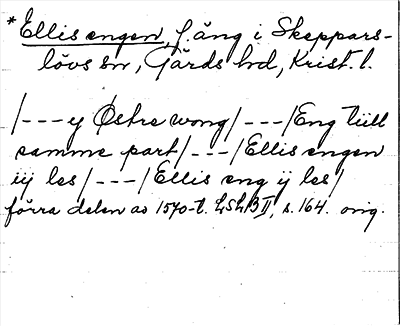 *Ellis engen, f. äng i Skeppars-
lövs sn, Gärds hd, Krist. l.
/---y Østre wong/---/Eng tiill
samme part/---/Ellis engen
iij les/---/Ellis eng ij les/
förra delen av 1570-t. LSLB II, s. 164. orig.